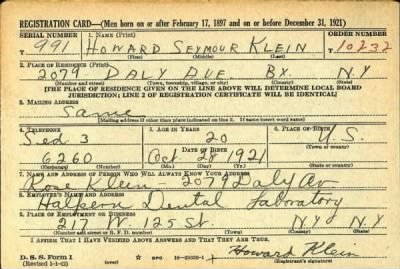 REGISTRATION CARD—(Men born on or after February 17, 1897 and on or before December 31, 1921)
SERIAL NUMBER 1. NAME (Print) ORDER NUMBER
991 HOWARD SEYMOUR KLEIN 10232
(First) (Middle) (Last)
2. PLACE OF RESIDENCE (Print)
2079 DALY AVE BX. NY
(Number and street) (Town, township, village, or city) (County) (State)
[THE PLACE OF RESIDENCE GIVEN ON THE LINE ABOVE WILL DETERMINE LOCAL BOARD
JURISDICTION; LINE 2 OF REGISTRATION CERTIFICATE WILL BE IDENTICAL]
3. MAILING ADDRESS
Same
[Mailing address if other than place indicated on line 2. If same insert word same]
4. TELEPHONE 5. AGE IN YEARS 6. PLACE OF BIRTH
Sed 3 20 U.S.
DATE OF BIRTH (Town or county)
6260 Oct 28 1921
(Exchange) (Number) (Mo.) (Day) (Yr.) (State or country)
7. NAME AND ADDRESS OF PERSON WHO WILL ALWAYS KNOW YOUR ADDRESS
Rose Klein - 2079 Daly Av
8. EMPLOYER'S NAME AND ADDRESS
Halpern Dental Laboratory
9. PLACE OF EMPLOYMENT OR BUSINESS
217 W. 125 St. NY NY
(Number and street or R. F. D. number) (Town) (County) (State)
I AFFIRM THAT I HAVE VERIFIED ABOVE ANSWERS AND THAT THEY ARE TRUE.
D. S. S. Form 1
(Revised 1-1-42) GPO Howard Klein
(Registrant's signature)